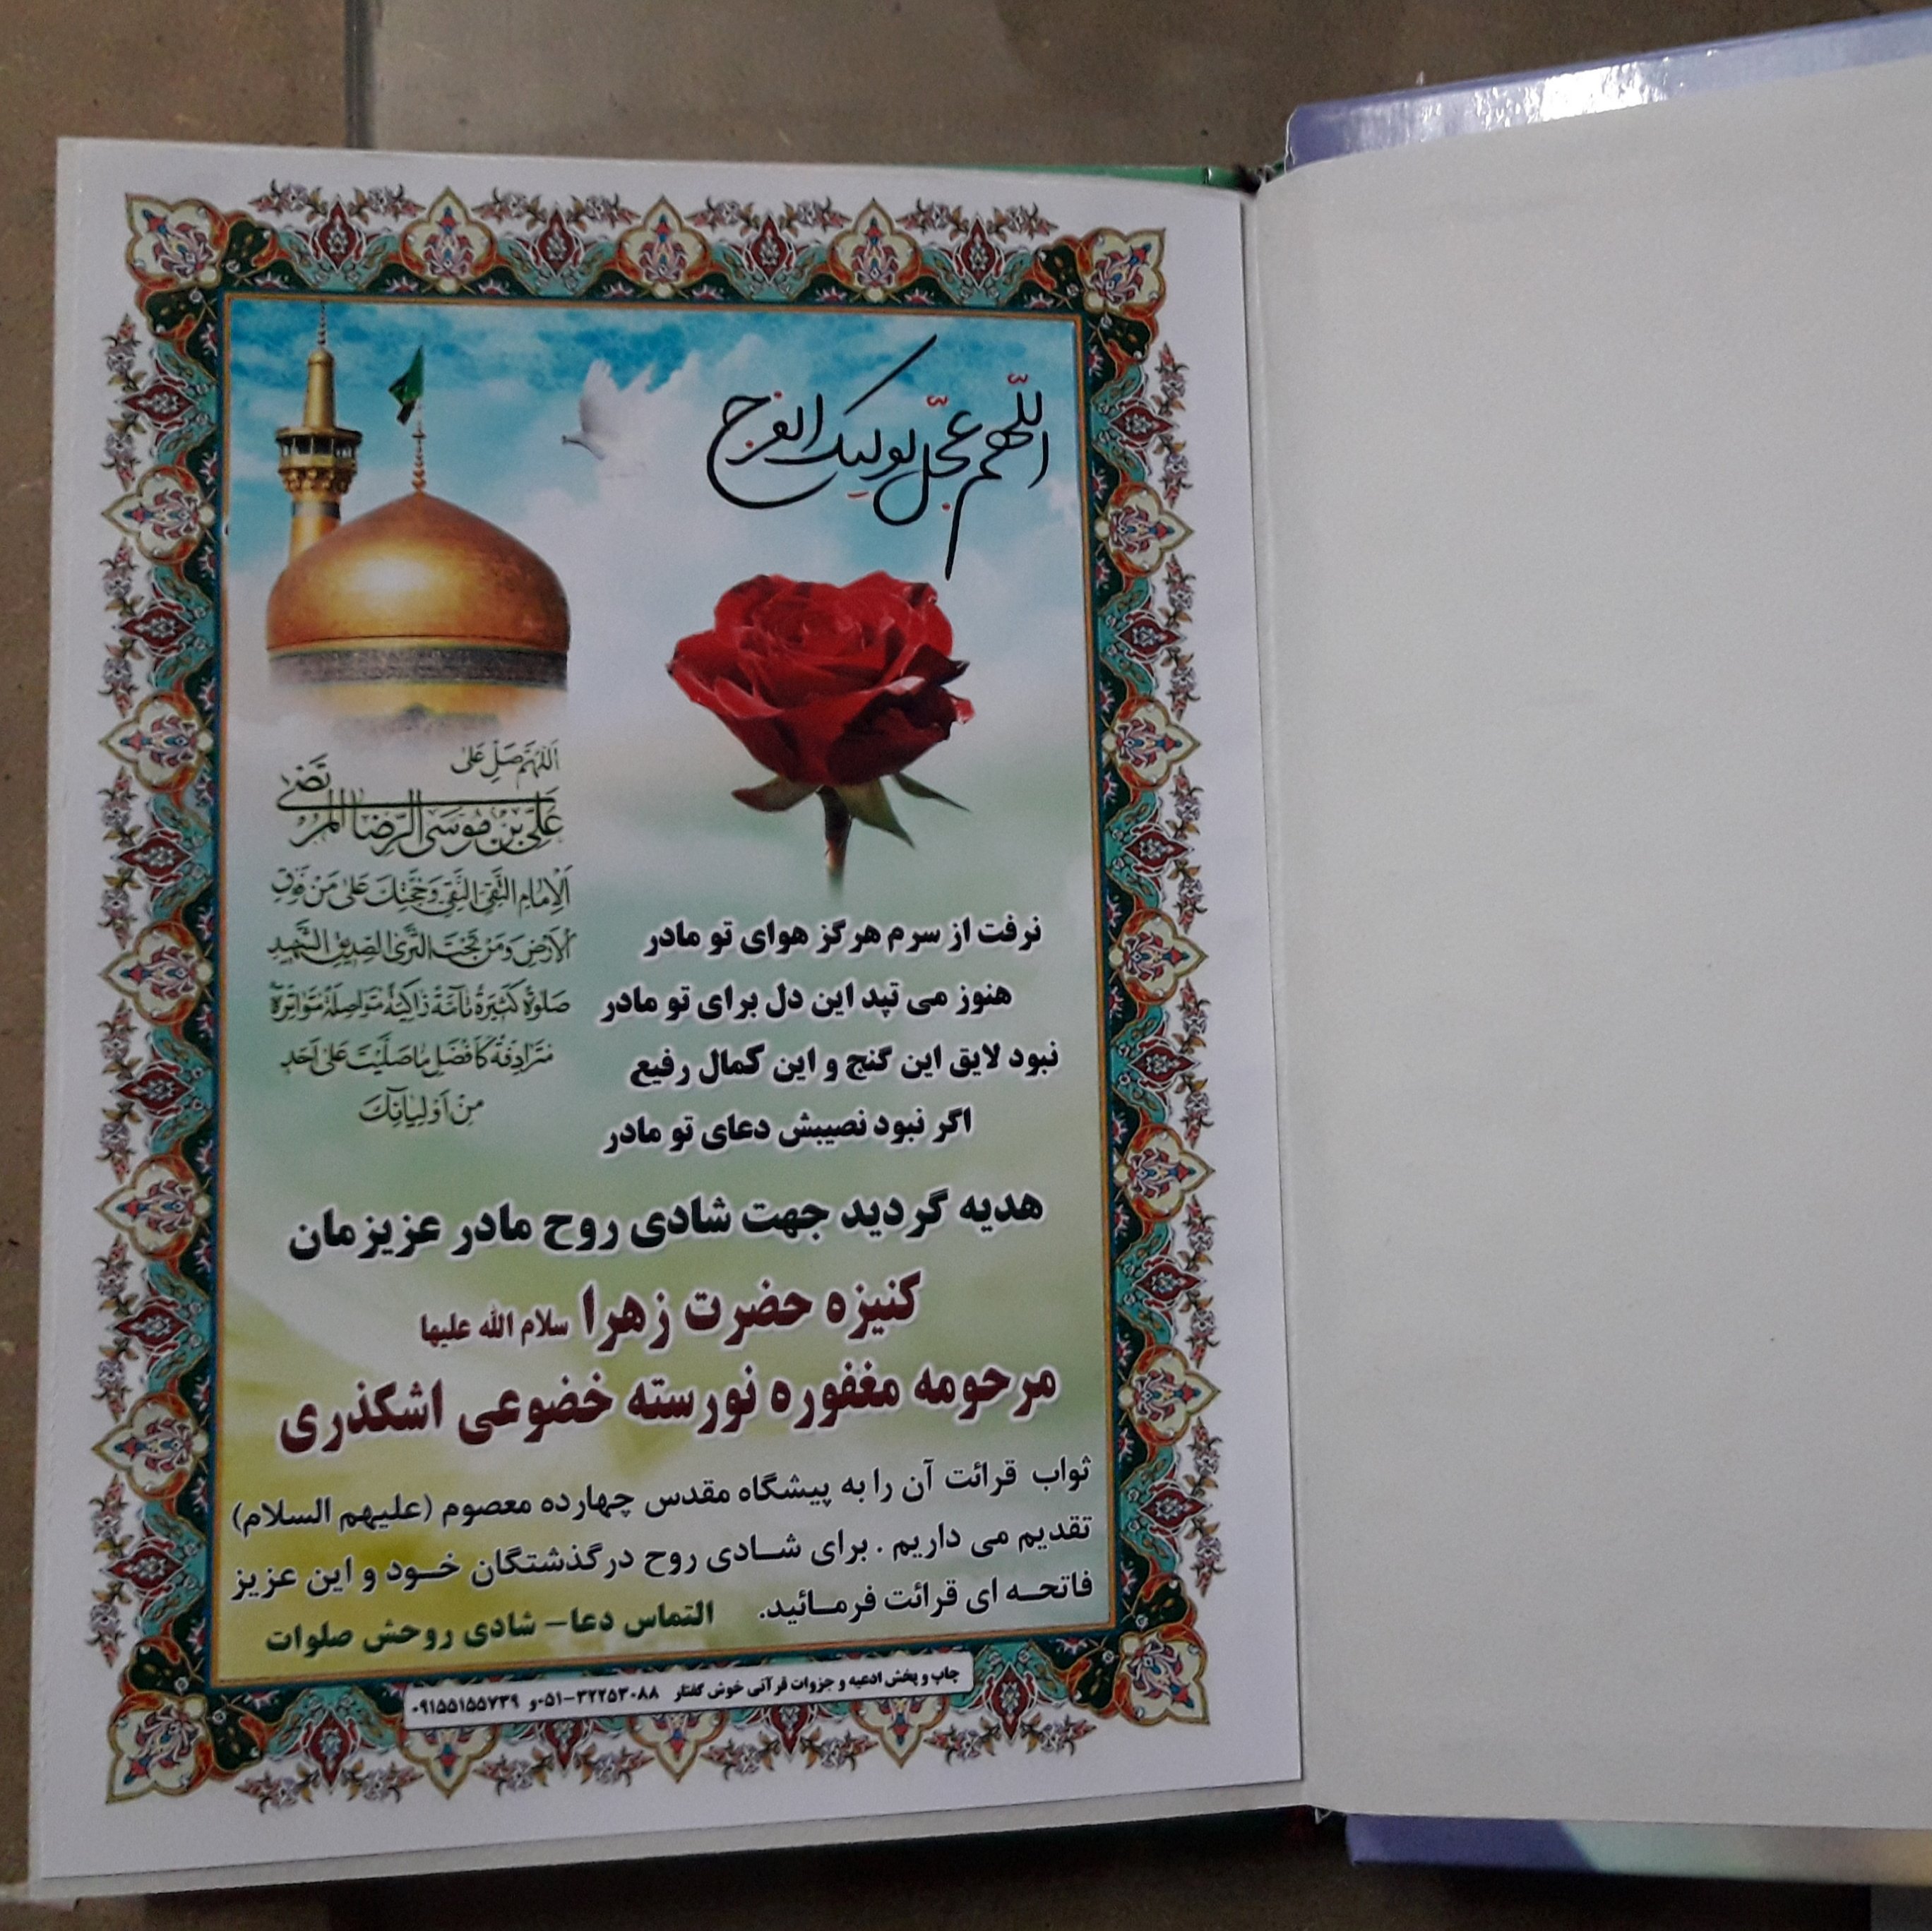 اللّهم عجّل لولیک الفرج
اَللّهُمَّ صَلِّ عَلی
عَلِیِّ بْنِ مُوسَی الرِّضَا الْمُرْتَضی
اَلْاِمامِ التَّقِیِّ النَّقِیِّ وَ حُجَّتِکَ عَلی مَنْ فَوْقَ
الْاَرْضِ وَ مَنْ تَحْتَ الثَّرَی الصِّدّیقِ الشَّهیدِ
صَلوةً کَثیرَةً تآمَّةً زاکِیَةً مُتَواصِلَةً مُتَواتِرَةً
مُتَرادِفَةً کَاَفْضَلِ ما صَلَّیْتَ عَلی اَحَدٍ
مِنْ اَوْلِیائِکَ
نرفت از سرم هرگز هوای تو مادر
هنوز می تپد این دل برای تو مادر
نبود لایق این گنج و این کمال رفیع
اگر نبود نصیبش دعای تو مادر
هدیه گردید جهت شادی روح مادر عزیزمان
کنیزه حضرت زهرا سلام الله علیها
مرحومه مغفوره نورسته خضوعی اشکذری
ثواب قرائت آن را به پیشگاه مقدس چهارده معصوم (علیهم السلام)
تقدیم می داریم . برای شادی روح درگذشتگان خود و این عزیز
فاتحه ای قرائت فرمائید. التماس دعا- شادی روحش صلوات
چاپ و پخش ادعیه و جزوات قرآنی خوش گفتار ۳۲۲۵۳۰۸۸-۰۵۱ و ۰۹۱۵۵۱۵۵۷۳۹